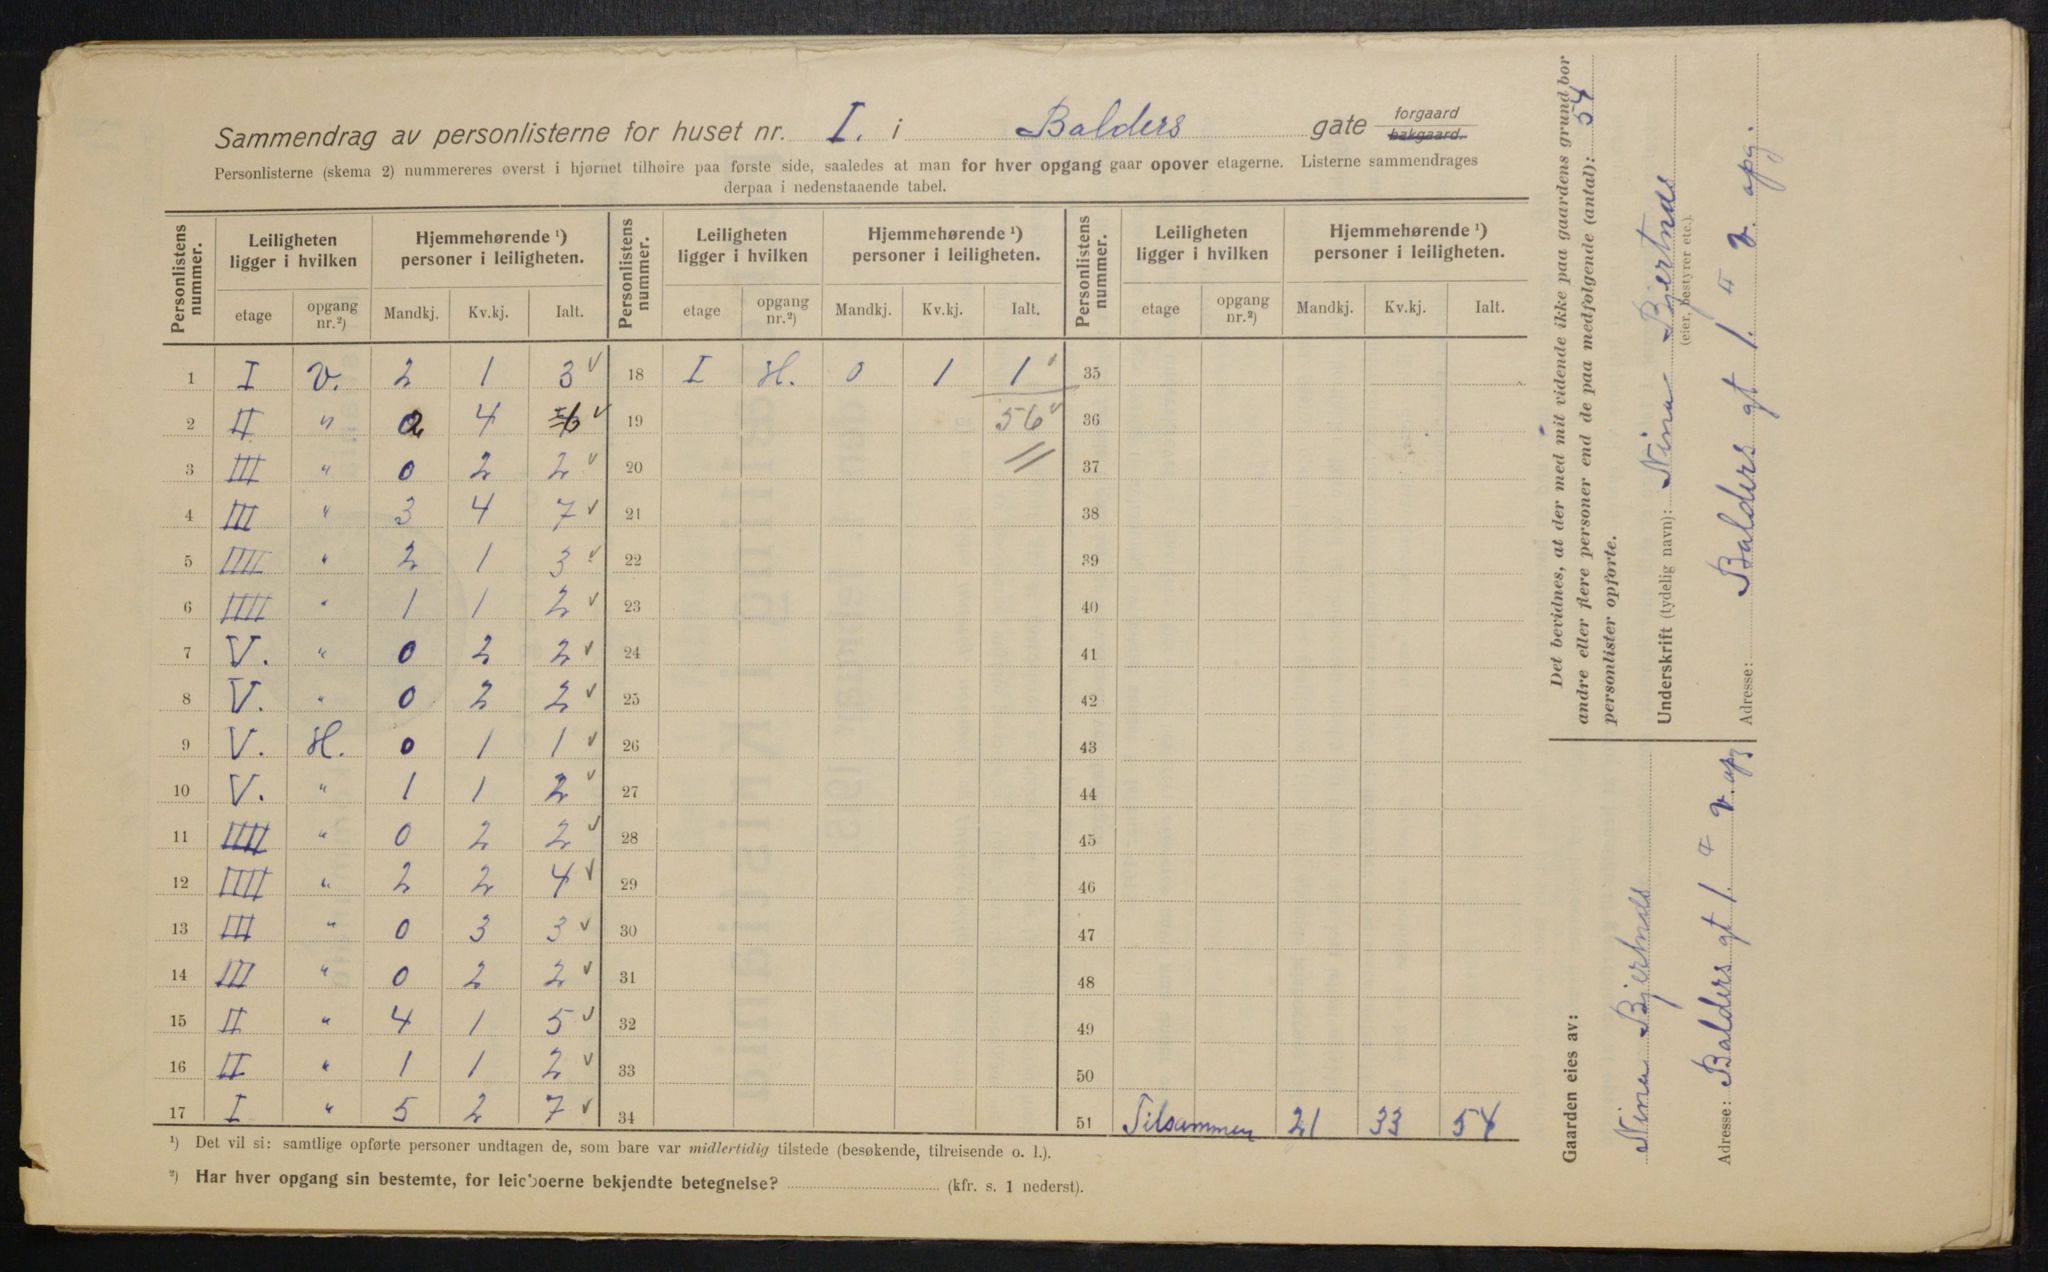 Sammendrag av personlisterne for huset nr. I. i Balders gate forgaard
bakgaard.
Personlisterne (skema 2) nummereres øverst i hjørnet tilhøire paa første side, saaledes at man for hver opgang gaar opover etagerne. Listerne sammendrages
derpaa i nedenstaaende tabel.
Personlistens nummer. Leiligheten ligger i hvilken Hjemmehørende ¹) personer i leiligheten. Personlistens nummer. Leiligheten ligger i hvilken Hjemmehørende ¹) personer i leiligheten. Personlistens nummer. Leiligheten ligger i hvilken Hjemmehørende ¹) personer i leiligheten.
etage opgang nr.²) Mandkj. Kv.kj. Ialt. etage opgang nr.²) Mandkj. Kv.kj. Ialt. etage opgang nr.²) Mandkj. Kv.kj. Ialt.
1 I V. 2 1 3 18 I H. 0 1 1 35
2 II " 2 4 6 19 56 36
3 III " 0 2 2 20 37
4 III " 3 4 7 21 38
5 IIII " 2 1 3 22 39
6 IIII " 1 1 2 23 40
7 V. " 0 2 2 24 41
8 V. " 0 2 2 25 42
9 V. H. 0 1 1 26 43
10 V. " 1 1 2 27 44
11 IIII " 0 2 2 28 45
12 IIII " 2 2 4 29 46
13 III " 0 3 3 30 47
14 III " 0 2 2 31 48
15 II " 4 1 5 32 49
16 II " 1 1 2 33 50
17 I " 5 2 7 34 51 Tilsammen 21 33 54
¹) Det vil si: samtlige opførte personer undtagen de, som bare var midlertidig tilstede (besøkende, tilreisende o. l.).
²) Har hver opgang sin bestemte, for leieboerne bekjendte betegnelse? (kfr. s. 1 nederst).
Det bevidnes, at der med mit vidende ikke paa gaardens grund bor
andre eller flere personer end de paa medfølgende (antal): 54
personlister opførte.
Underskrift (tydelig navn): Nina Bjertnæs
(eier, bestyrer etc.).
Adresse: Balders gt 1. 4 v. opg.
Gaarden eies av:
Nina Bjertnæs
Adresse: Balders gt 1. 4 v. opg